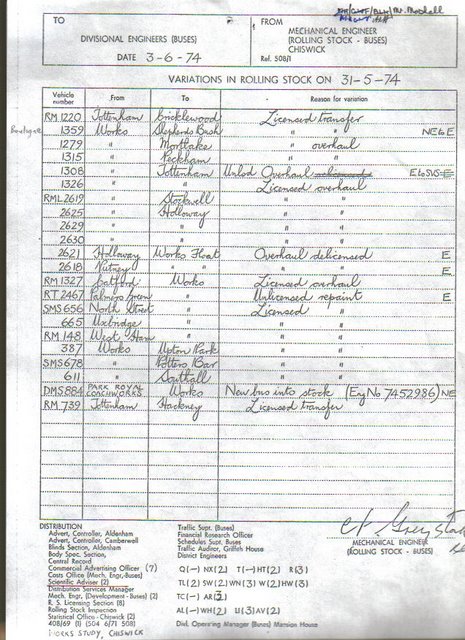 TO
DIVISIONAL ENGINEERS (BUSES)
DATE 3-6-74
FROM
MECHANICAL ENGINEER
(ROLLING STOCK - BUSES)
CHISWICK
Ref. 508/1
VARIATIONS IN ROLLING STOCK ON 31-5-74
Vehicle number From To Reason for variation
RM 1220 Tottenham Cricklewood Licensed transfer
1359 Works Shepherds Bush " " NE6E
1279 " Mortlake " overhaul
1315 " Peckham " "
1308 " Tottenham Unlsd Overhaul
1326 " " Licensed overhaul
RML 2619 " Stockwell " "
2625 " Holloway " "
2629 " " " "
2630 " " " "
2621 Holloway Works Float Overhaul delicensed E
2618 Putney " " " " E
RM 1327 Catford Works Licensed overhaul
RT 2467 Palmers Green " Unlicensed repaint E
SMS 656 North Street " Licensed "
665 Uxbridge " " "
RM 148 West Ham " " "
387 Works Upton Park " "
SMS 678 " Potters Bar " "
611 " Southall " "
DMS 884 PARK ROYAL COACHWORKS Works New bus into stock (Eng No 7452986) NE
RM 739 Tottenham Hackney Licensed transfer
MECHANICAL ENGINEER
DISTRIBUTION
Advert. Controller, Aldenham
Advert. Controller, Camberwell
Blinds Section, Aldenham
Body Spec. Section,
Central Record
Commercial Advertising Officer (7)
Costs Office (Mech. Engr.-Buses)
Scientific Adviser (2)
Distribution Services Manager
Mech. Engr. (Development)
R. S. Licensing Section (8)
Rolling Stock Inspection
Statistical Office - Chiswick (2)
408/69 (1) (504 6/71 508)
WORKS STUDY, CHISWICK
Traffic Supt. (Buses)
Financial Research Officer
Schedules Supt. Buses
Traffic Auditor, Griffith House
District Engineers
Q(-) NX(2) T(-) HT(2) R(3)
TL(2) SW(2) WN(3) W(2) HW(3)
TC(-) AR(3)
AL(-) WH(2) U(3) AV(2)
Divl. Operating Manager (Buses) Mansion House